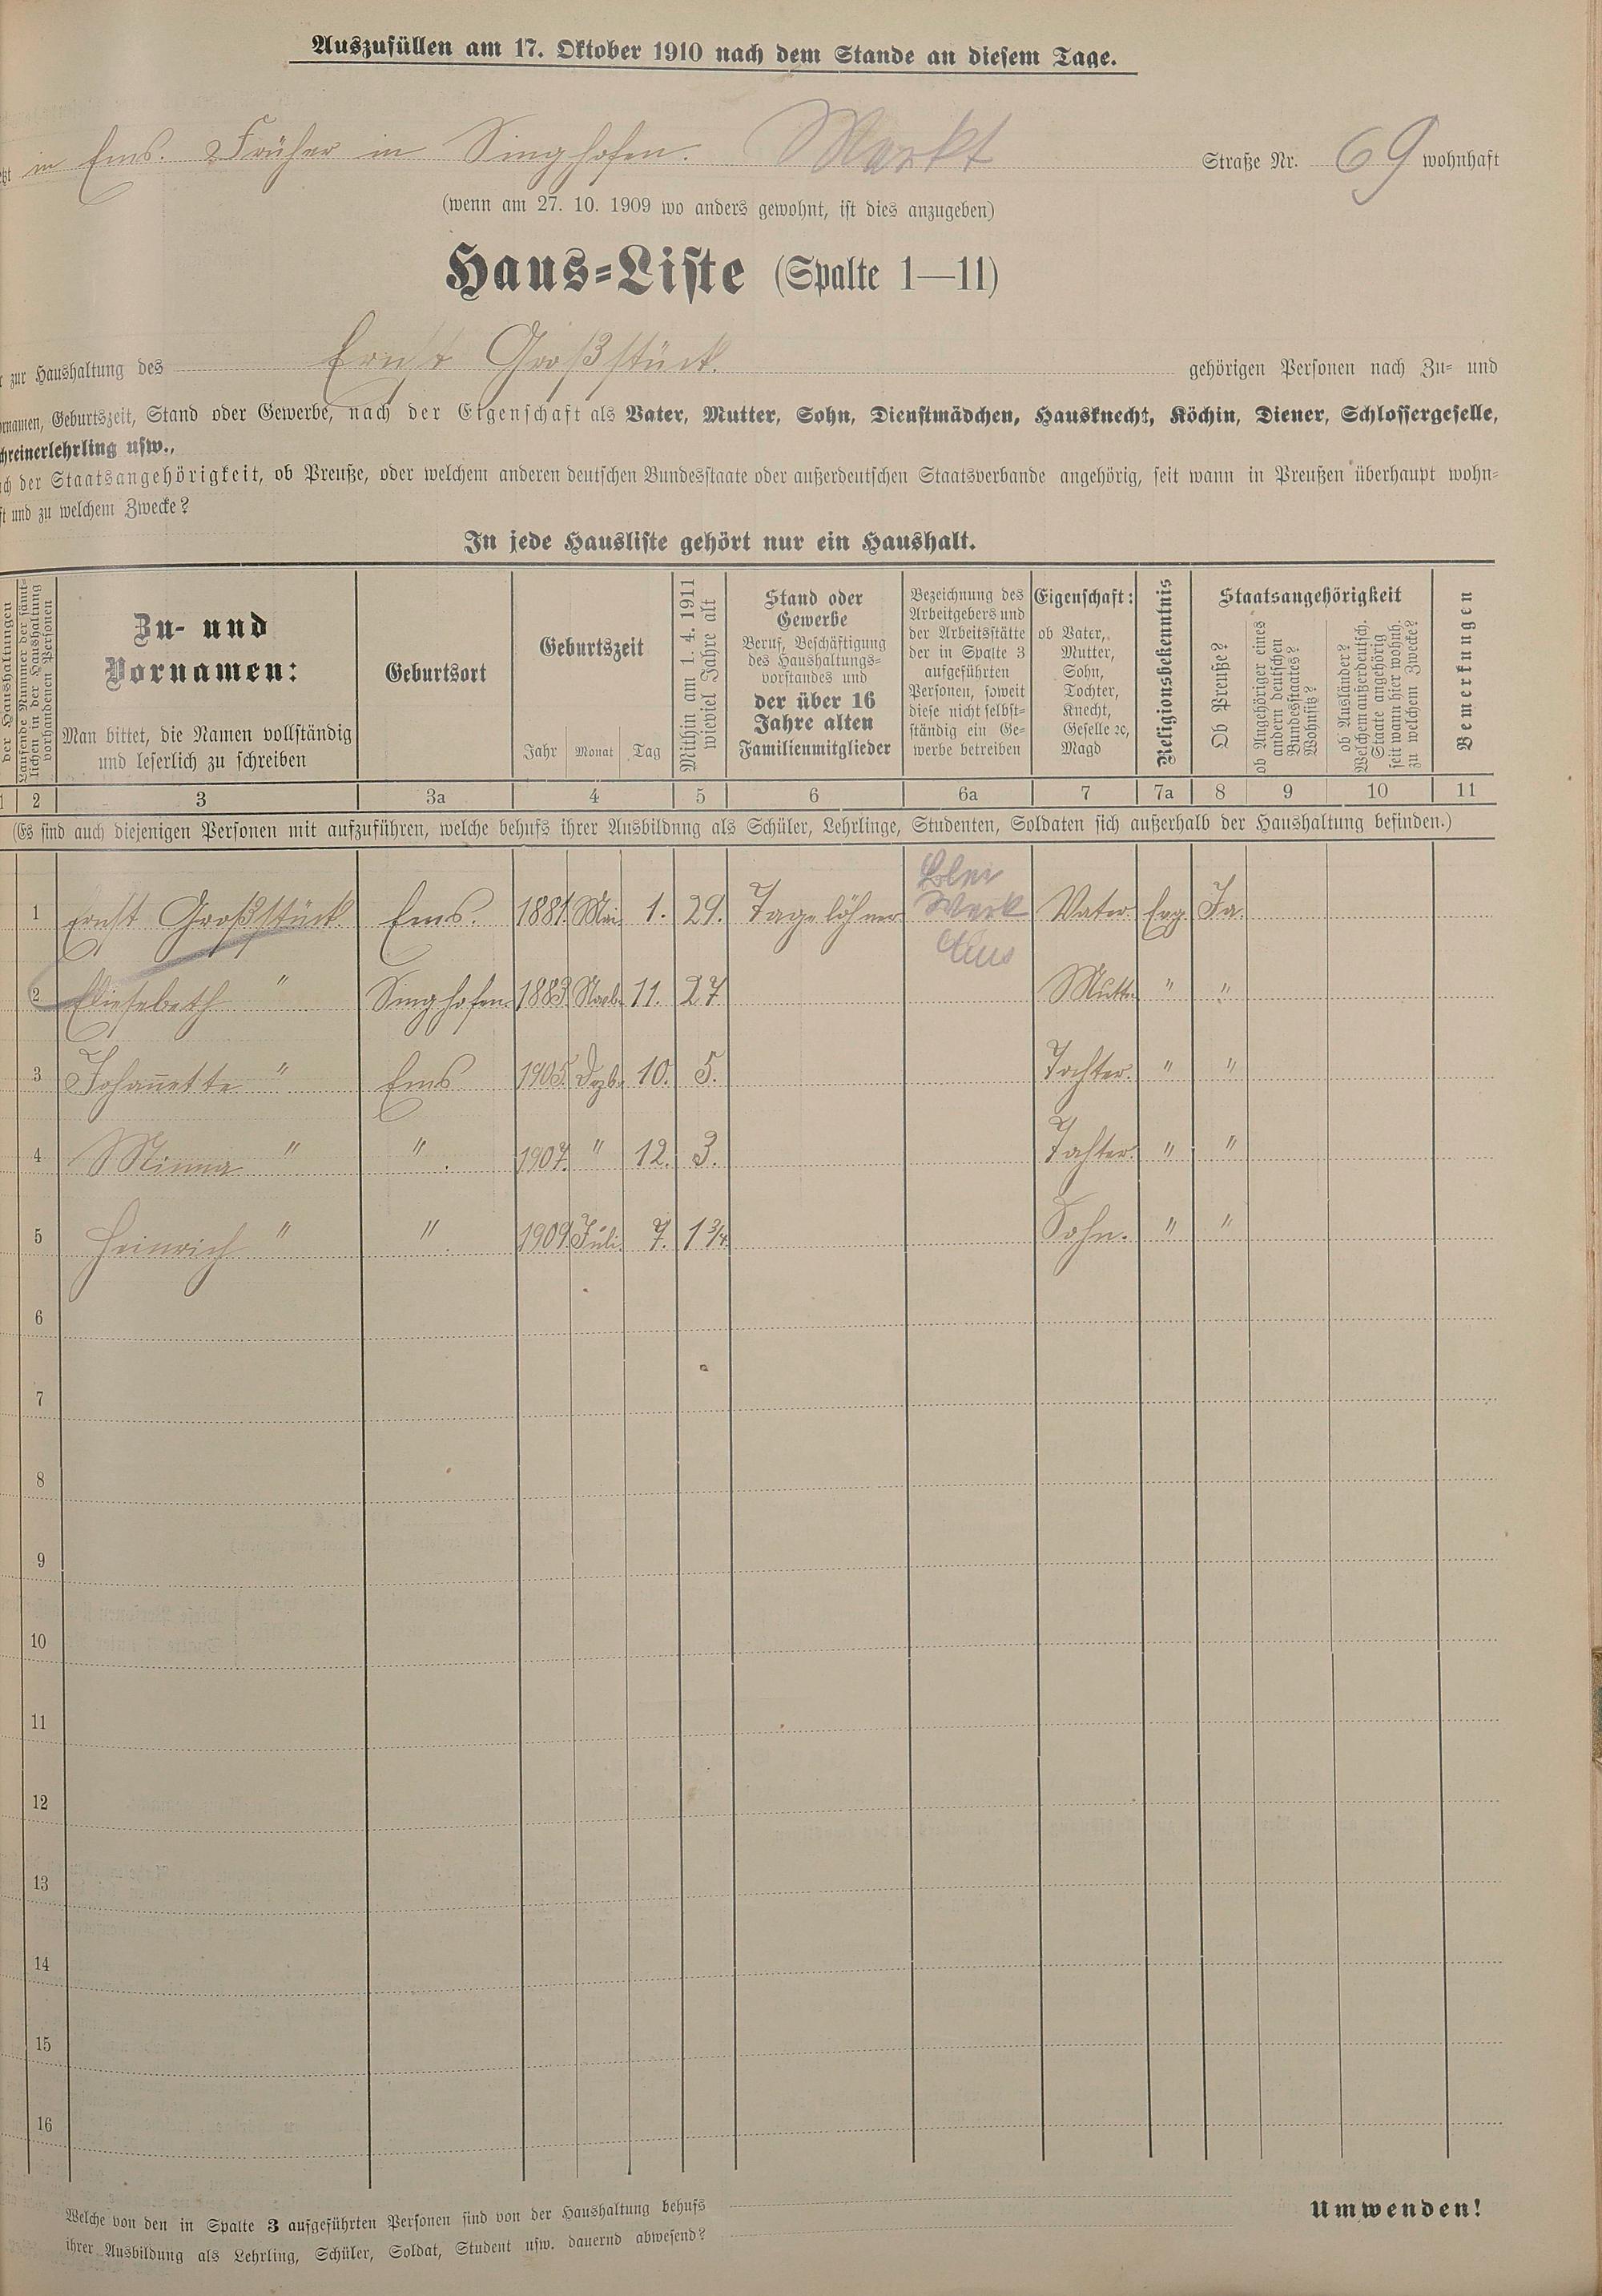 Auszufüllen am 17. Oktober 1910 nach dem Stande an diesem Tage.
in Ems. Früher in Singhofen. Markt Straße Nr. 69 wohnhaft
(wenn am 27. 10. 1909 wo anders gewohnt, ist dies anzugeben)
Haus-Liste (Spalte 1—11)
zur Haushaltung des Ernst Großstück. gehörigen Personen nach Zu- und
Geburtszeit, Stand oder Gewerbe, nach der Eigenschaft als Vater, Mutter, Sohn, Dienstmädchen, Hausknecht, Köchin, Diener, Schlossergeselle,
usw.,
der Staatsangehörigkeit, ob Preuße, oder welchem anderen deutschen Bundesstaate oder außerdeutschen Staatsverbande angehörig, seit wann in Preußen überhaupt wohn-
und zu welchem Zwecke?
In jede Hausliste gehört nur ein Haushalt.
der Haushaltungen
Laufende Nummer der sämt-
lichen in der Haushaltung
vorhandenen Personen
Zu- und
Vornamen:
Man bittet, die Namen vollständig
und leserlich zu schreiben
Geburtsort
Geburtszeit
Jahr Monat Tag
Mithin am 1. 4. 1911
wieviel Jahre alt
Stand oder
Gewerbe
Beruf, Beschäftigung
des Haushaltungs-
vorstandes und
der über 16
Jahre alten
Familienmitglieder
Bezeichnung des
Arbeitgebers und
der Arbeitsstätte
der in Spalte 3
aufgeführten
Personen, soweit
diese nicht selbst-
ständig ein Ge-
werbe betreiben
Eigenschaft:
ob Vater,
Mutter,
Sohn,
Tochter,
Knecht,
Geselle ꝛc,
Magd
Religionsbekenntnis
Staatsangehörigkeit
Ob Preuße?
ob Angehöriger eines
andern deutschen
Bundesstaates?
Wohnsitz?
ob Ausländer?
Welchem außerdeutsch.
Staate angehörig
seit wann hier wohnh.
zu welchem Zwecke?
Bemerkungen
1 2 3 3a 4 5 6 6a 7 7a 8 9 10 11
(Es sind auch diejenigen Personen mit aufzuführen, welche behufs ihrer Ausbildung als Schüler, Lehrlinge, Studenten, Soldaten sich außerhalb der Haushaltung befinden.)
1 Ernst Großstück. Ems. 1881. Mai. 1. 29. Tagelöhner Blei Werk Ems Vater. Evg. Ja.
2 Eliesebeth " Singhofen. 1883. Novb. 11. 27. Mutter " "
3 Johan̄ette " Ems 1905. Dezb. 10. 5. Tochter. " "
4 Minna " " 1907. " 12. 3. Tochter. " "
5 Heinrich " " 1909. Juli. 7. 1 3/4. Sohn. " "
6
7
8
9
10
11
12
13
14
15
16
Welche von den in Spalte 3 aufgeführten Personen sind von der Haushaltung behufs
ihrer Ausbildung als Lehrling, Schüler, Soldat, Student usw. dauernd abwesend?
Umwenden!